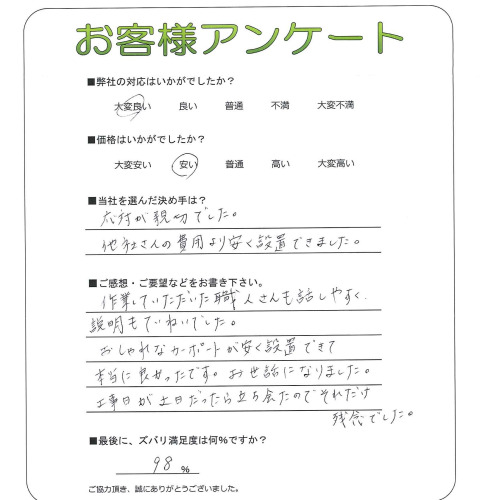 お客様アンケート
■弊社の対応はいかがでしたか？
大変良い 良い 普通 不満 大変不満
■価格はいかがでしたか？
大変安い 安い 普通 高い 大変高い
■当社を選んだ決め手は？
応対が親切でした。
他社さんの費用より安く設置できました。
■ご感想・ご要望などをお書き下さい。
作業していただいた職人さんも話しやすく、
説明もていねいでした。
おしゃれなカーポートが安く設置できて
本当に良かったです。お世話になりました。
工事日が土日だったら立ち会えたのでそれだけ
残念でした。
■最後に、ズバリ満足度は何％ですか？
98 ％
ご協力頂き、誠にありがとうございました。